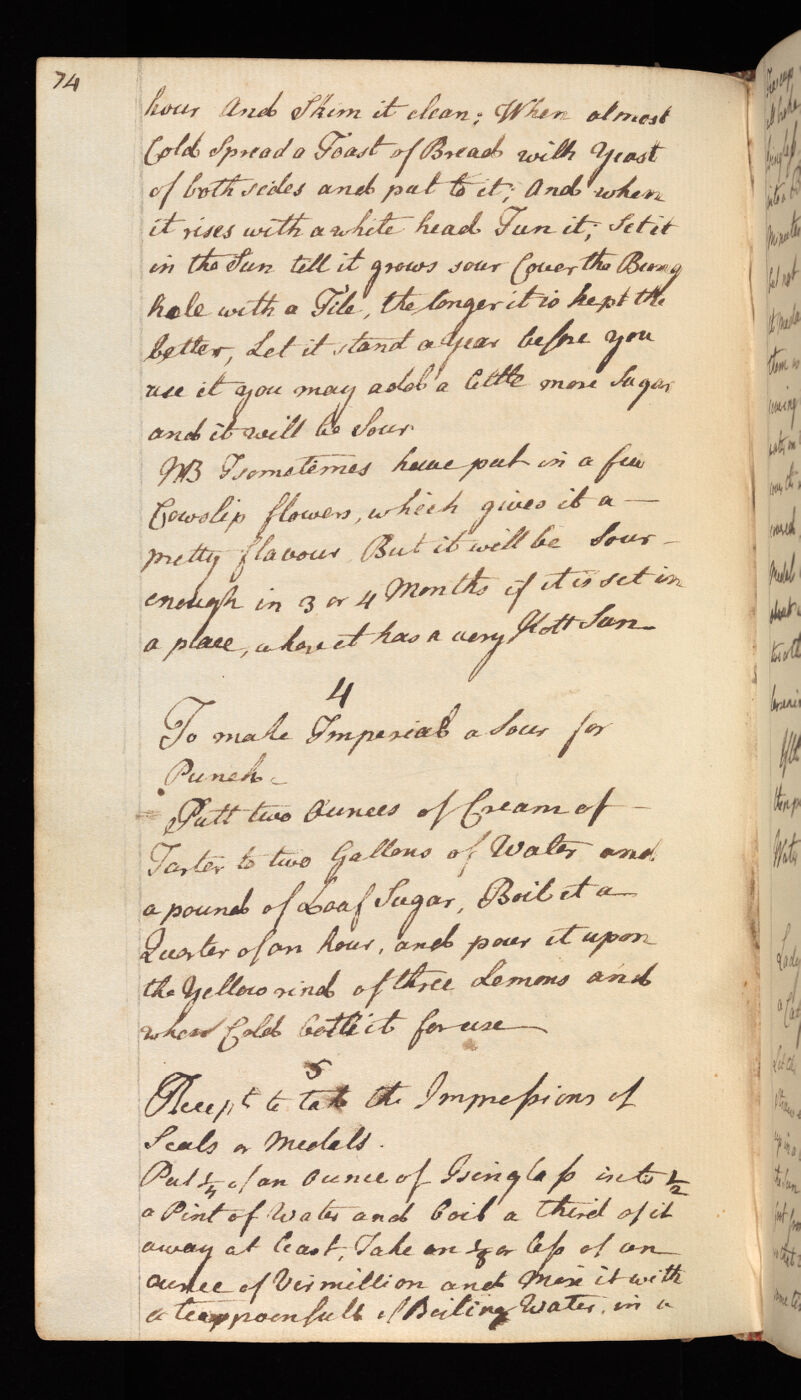 74
hour And Skim it clean; When almost
Cold Spread a Toast of Bread with Yeast
of both sides and put to it; And when
it rises with a white head Tun it; Set it
in the Sun tell it grows sour Cover the Bung
hole with a Tile, the longer it is kept the
better, Let it stand a Year before you
use it you may add a little more Sugar
and it will be Sour
NB I sometimes have put in a few
Cowslip flowers, which gives it a —
pretty flavour But it will be Sour —
enough in 3 or 4 Months if it is set in
a place, where it has a very Hott Sun
4
To make Imperial a Sour for
Punch
Putt two Ounces of Cream of —
Tarter to two Gallons of Water and
a pound of Loaf Sugar, Boil it a
Quarter of an hour, and pour it upon
the Yellow rind of three Lemons and
when Cold bottle it for use —
5
Recept to take the Impressions of
Seals or Medals.
Put 1/4 of an Ounce of Isinglass into 1/2
a Pint of Water and boil a third of it
away at least, Take an 1/8 or less of an
ounce of Vermillion and Mix it with
a teaspoonfull of Boiling Water, in a